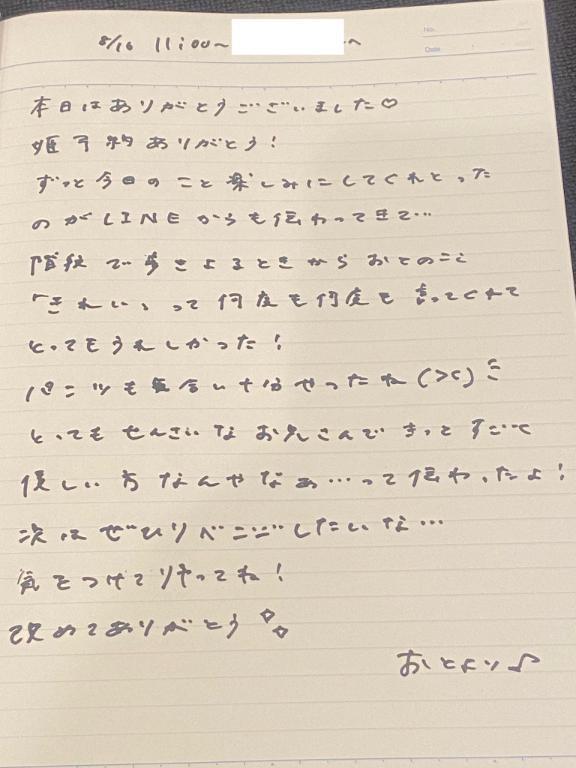 8/16 11:00〜 へ
No.
Date
本日はありがとうございました♡
姫予約ありがとう!
ずっと今日のこと楽しみにしてくれとった
のがLINEからも伝わってきて…
階段で歩きよるときからおとのこと
「きれい」って何度も何度も言ってくれて
とってもうれしかった!
パンツも気合い十分やったね(><)
とってもせんさいなお兄さんできっとすごく
優しい方なんやなぁ…って伝わったよ!
次はぜひリベンジしたいな…
気をつけて ってね!
改めてありがとう
おとより♪